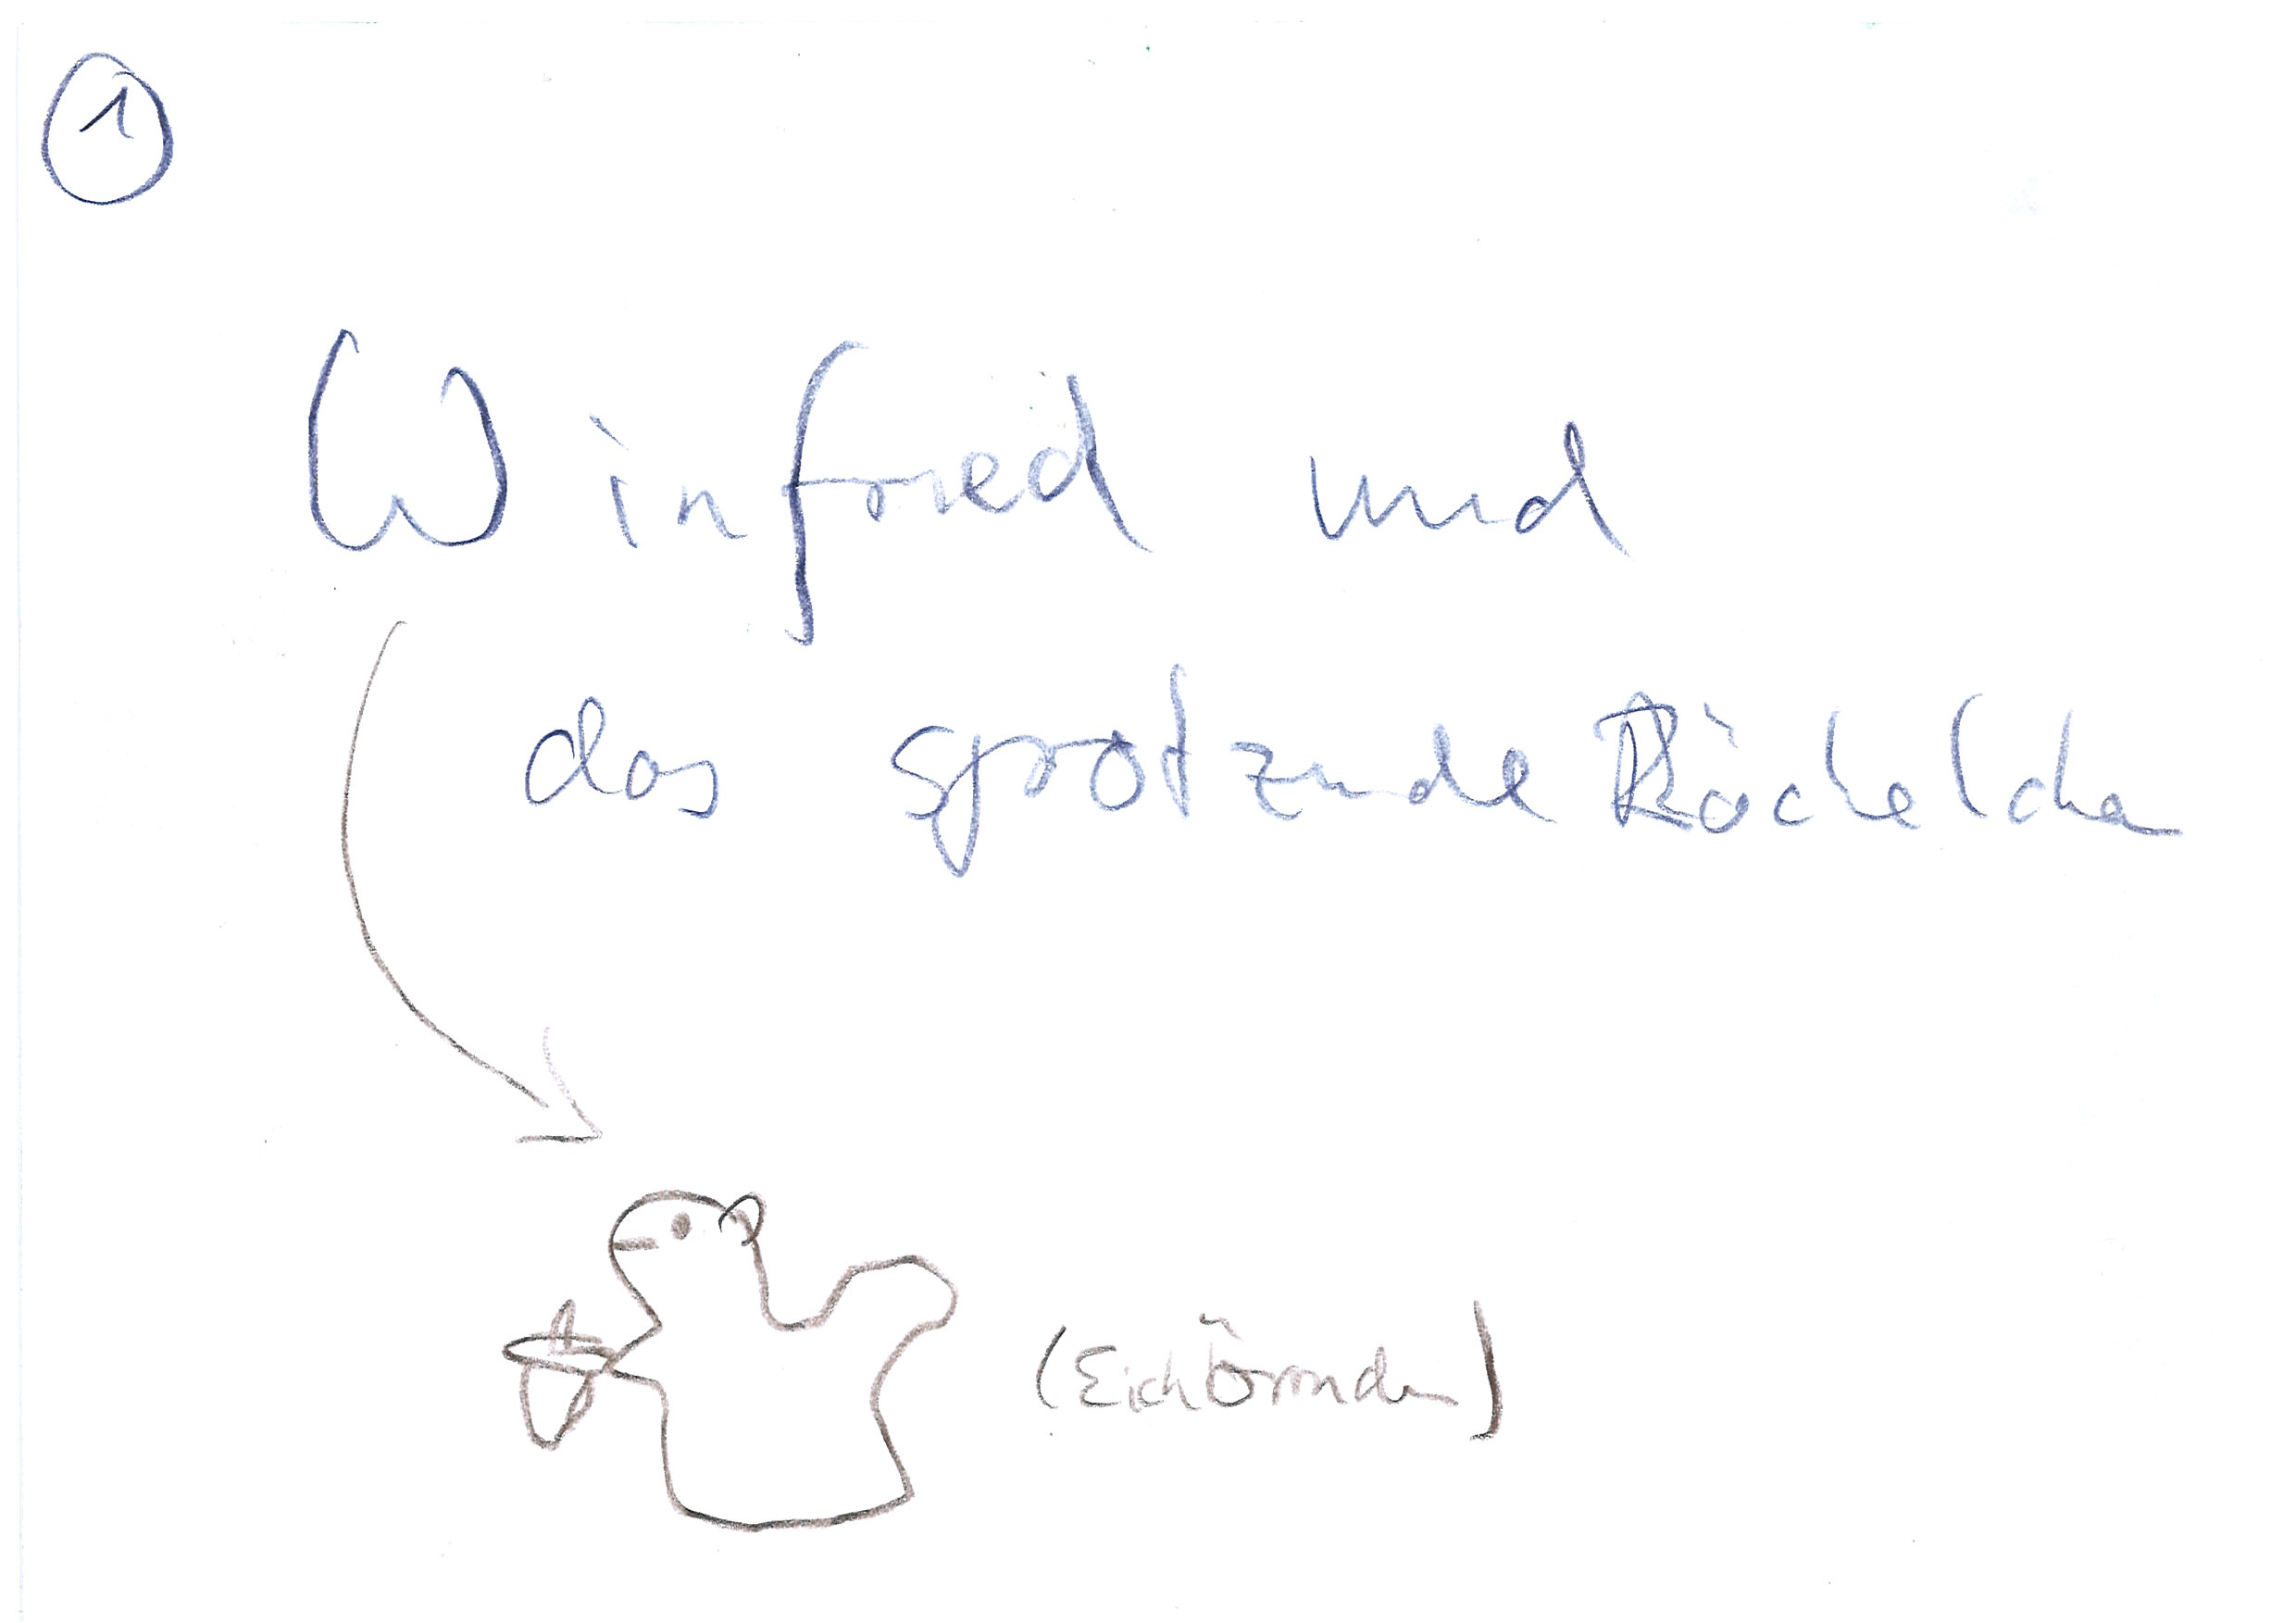 1
Winfried und
das sprotzende Röchelchen
(Eichhörnchen)